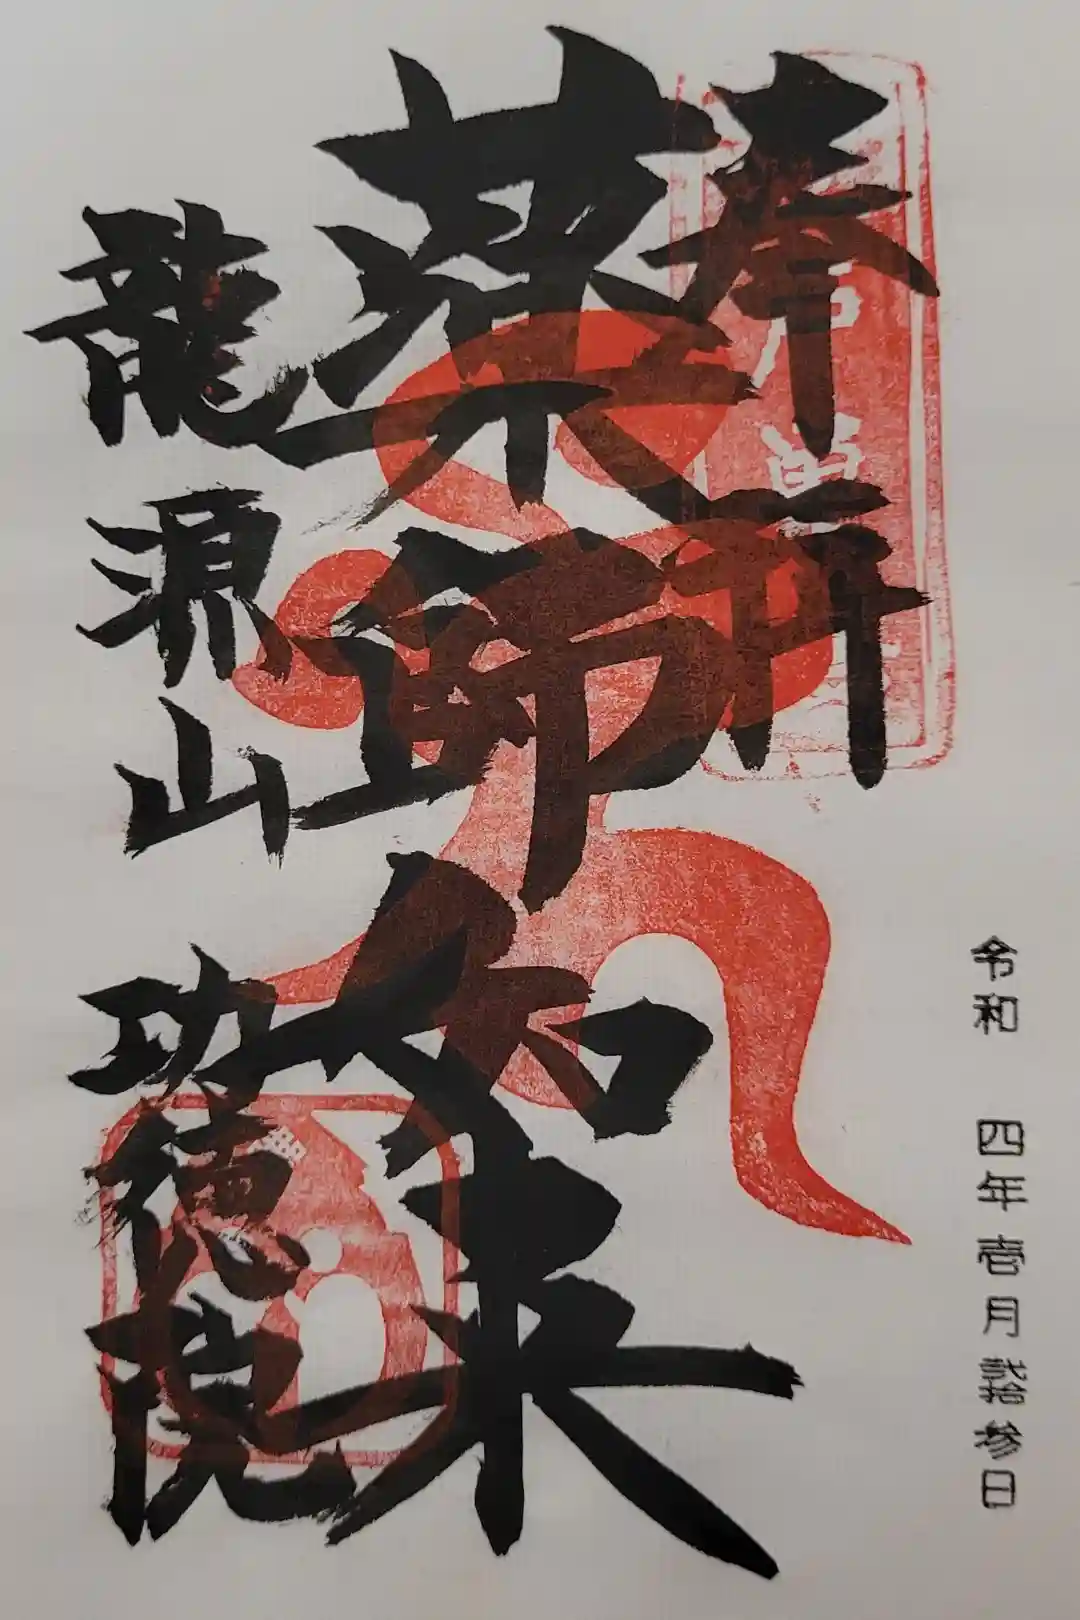 令和 四年壱月弐拾参日
奉拝
薬師如来
龍源山 功徳院